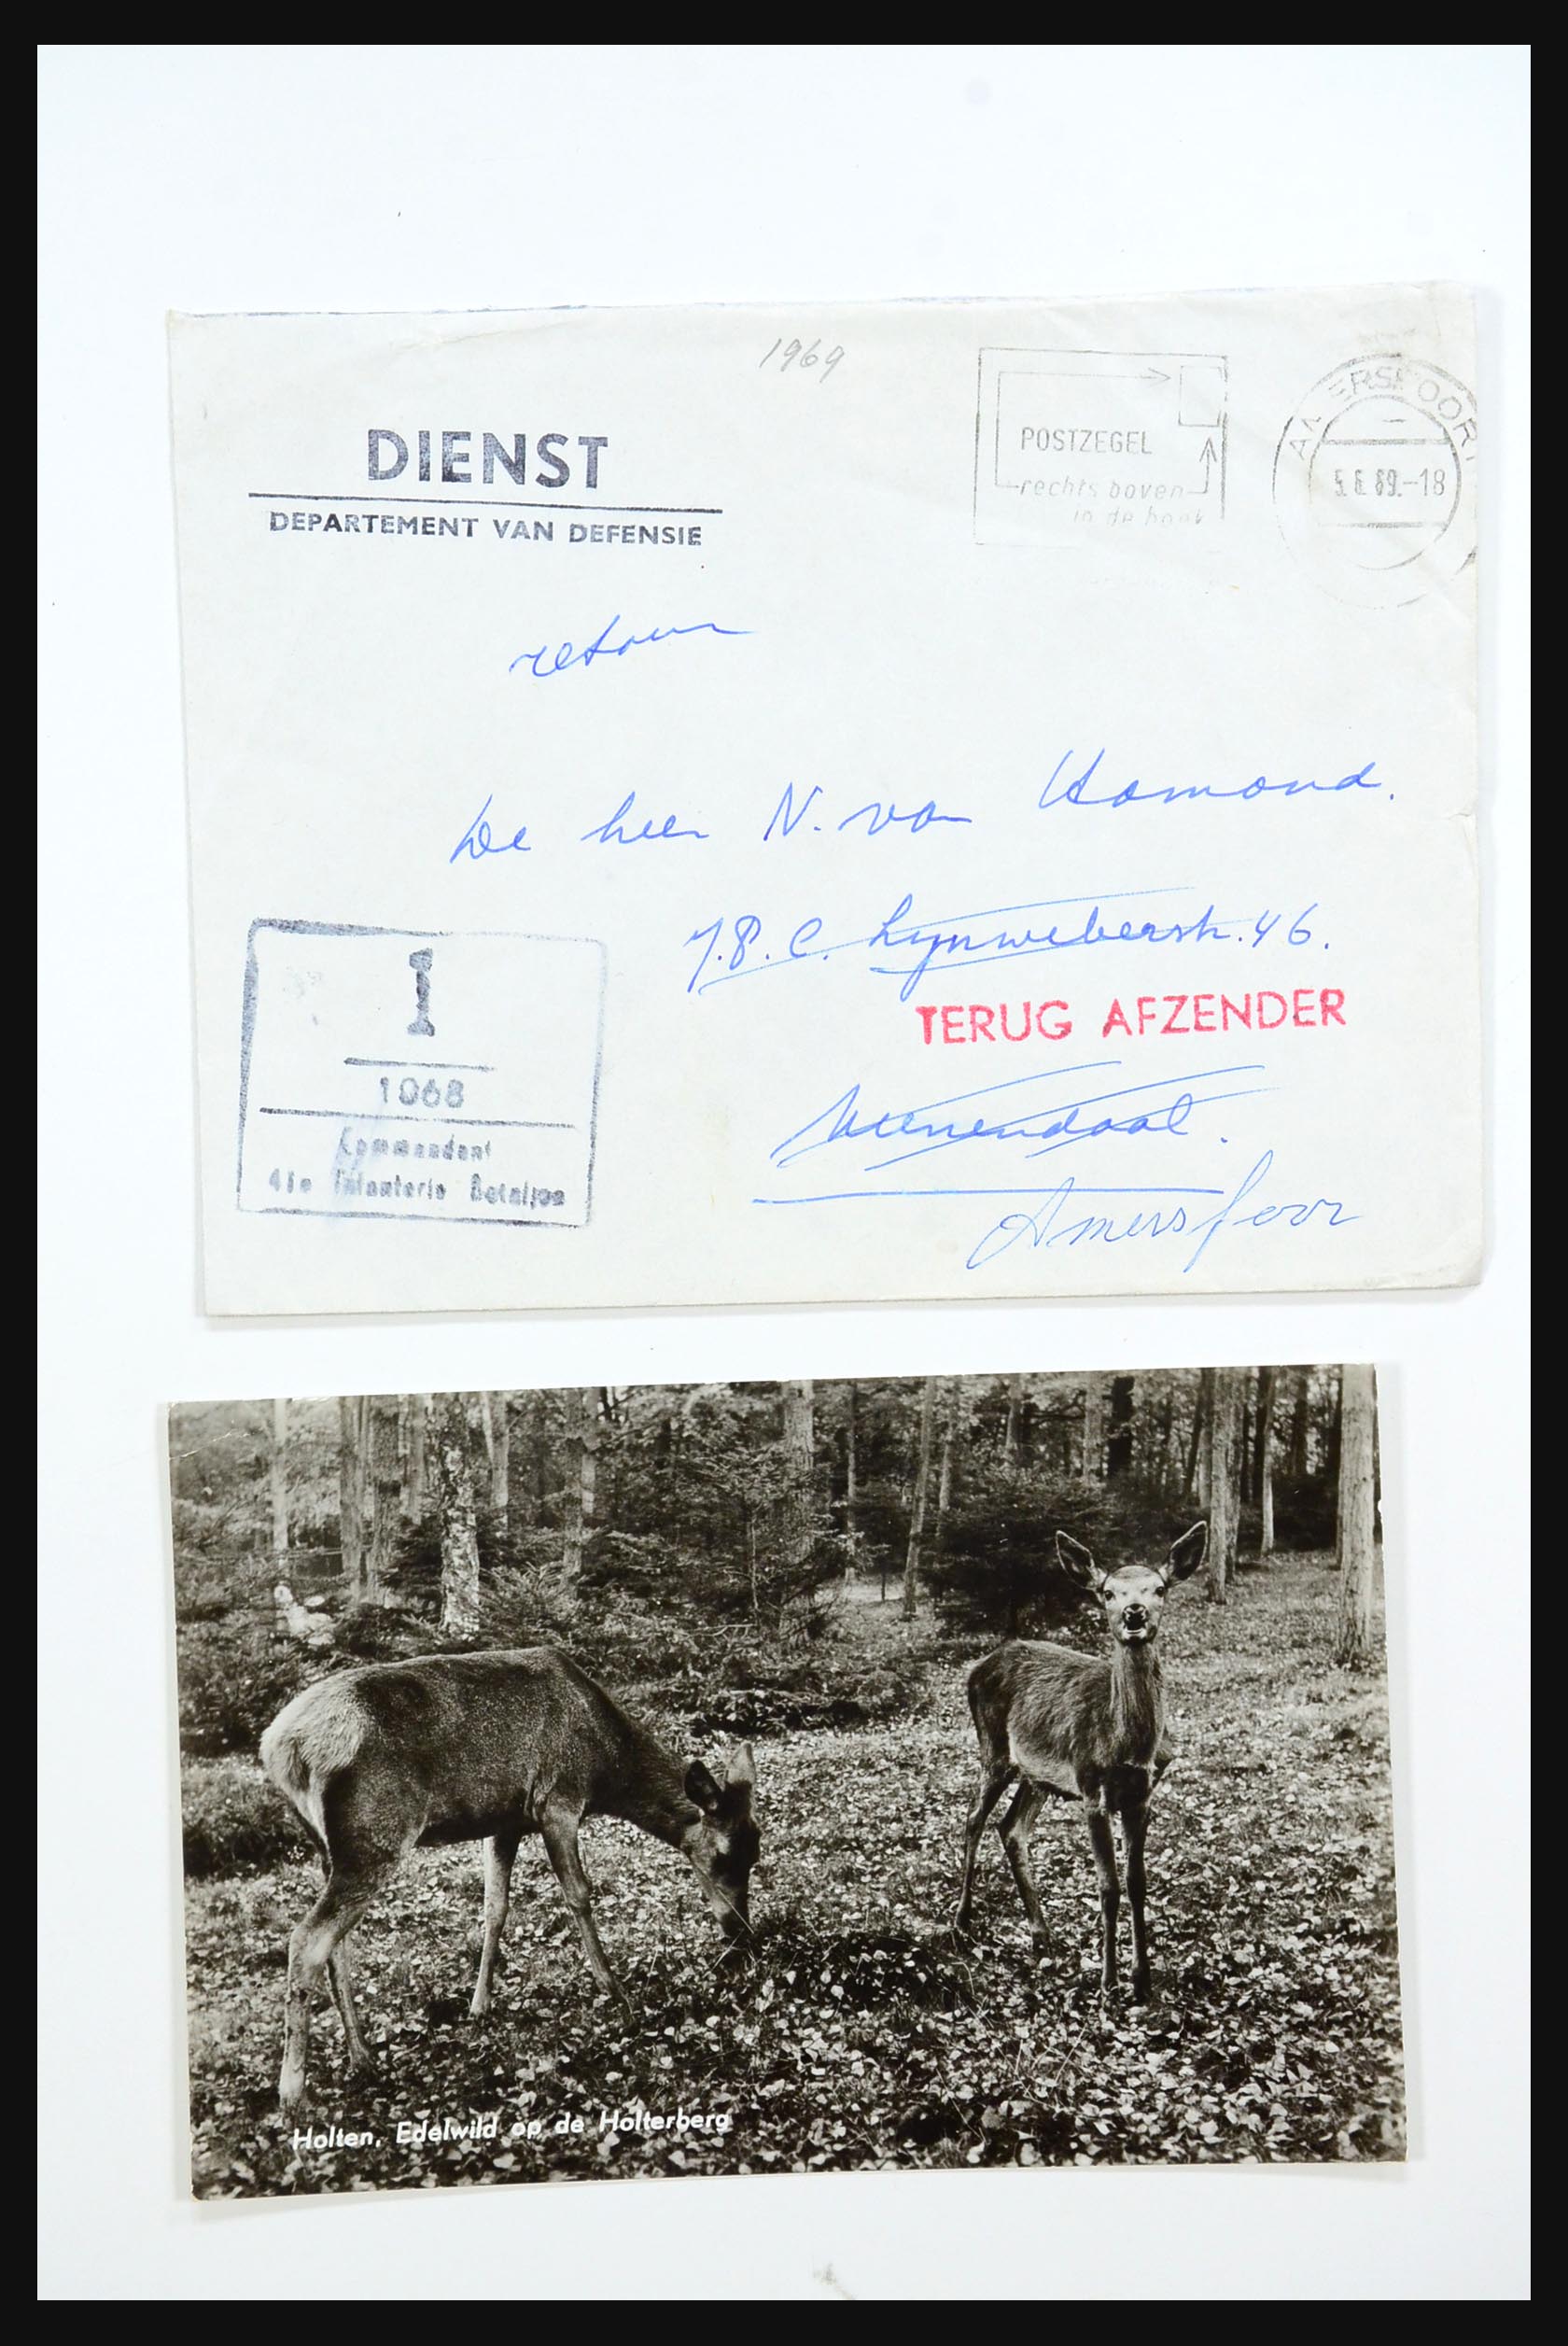 1969
DIENST
DEPARTEMENT VAN DEFENSIE
POSTZEGEL
rechts boven
in de hoek
AMERSFOORT
5.6.69.-18
retour
De heer N. van Hamond.
J.P.C. Lijnweberstr. 46.
TERUG AFZENDER
Veenendaal.
Amersfoor
1
1968
Commandant
41e Infanterie Bataljon
Holten, Edelwild op de Holterberg